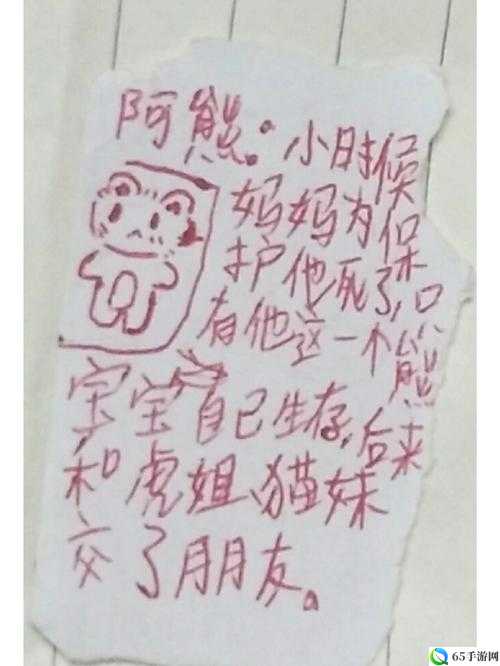 阿熊:小时候
妈妈为保
护他死了,只
有他这一个熊
宝宝自己生存,后来
和虎姐、猫妹
交了朋友。
65手游网